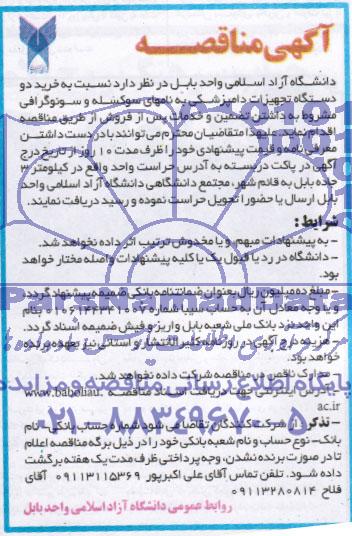 آگهی مناقصه
دانشگاه آزاد اسلامی واحد بابل در نظر دارد نسبت به خرید دو
دستگاه تجهیزات دامپزشکی به نامهای سوکسله و سونوگرافی
مشروط به داشتن تضمین و خدمات پس از فروش از طریق مناقصه
اقدام نماید. علیهذا متقاضیان محترم می‌توانند با در دست داشتن
معرفی نامه و قیمت پیشنهادی خود را ظرف مدت ۱۰ روز از تاریخ درج
آگهی در پاکت دربسته به آدرس حراست واحد واقع در کیلومتر ۳
جاده بابل به قائم شهر، مجتمع دانشگاهی دانشگاه آزاد اسلامی واحد
بابل ارسال یا حضوراً تحویل حراست نموده و رسید دریافت نمایند.
شرایط:
- به پیشنهادات مبهم و یا مخدوش ترتیب اثر داده نخواهد شد.
- دانشگاه در رد یا قبول یک یا کلیه پیشنهادات واصله مختار خواهد
بود.
- مبلغ ده میلیون ریال بعنوان ضمانتنامه بانکی ضمیمه پیشنهاد گردد
و یا وجه معادل آن به حساب سیبا شماره بنام
این واحد نزد بانک ملی شعبه بابل واریز و فیش ضمیمه اسناد گردد.
- هزینه درج آگهی در روزنامه کثیر الانتشار و استانی نیز بعهده برنده
خواهد بود.
- مدارک ناقص در مناقصه شرکت داده نخواهد شد.
- آدرس اینترنتی جهت دریافت اسناد مناقصه www.baboliau.
ac.ir
- تذکر: از شرکت کنندگان تقاضا می شود شماره حساب بانکی - نام
بانک - نوع حساب و نام شعبه بانکی خود را در ذیل برگه مناقصه اعلام
تا در صورت برنده نشدن، وجه پرداختی ظرف مدت یک هفته برگشت
داده شود. تلفن تماس آقای علی اکبرپور ۰۹۱۱۳۱۱۵۳۶۹ آقای
فلاح ۰۹۱۱۳۲۸۰۸۱۴
روابط عمومی دانشگاه آزاد اسلامی واحد بابل
پایگاه اطلاع رسانی مناقصه و مزایده
۰۲۱-۸۸۳۴۹۶۷۰-۵